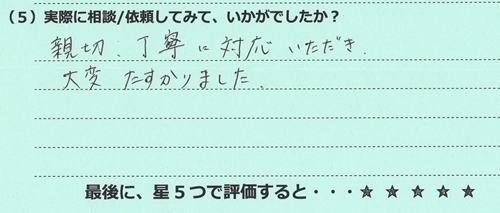 （5）実際に相談/依頼してみて、いかがでしたか？
親切、丁寧に対応いただき、
大変たすかりました。
最後に、星５つで評価すると・・・★ ★ ★ ★ ★